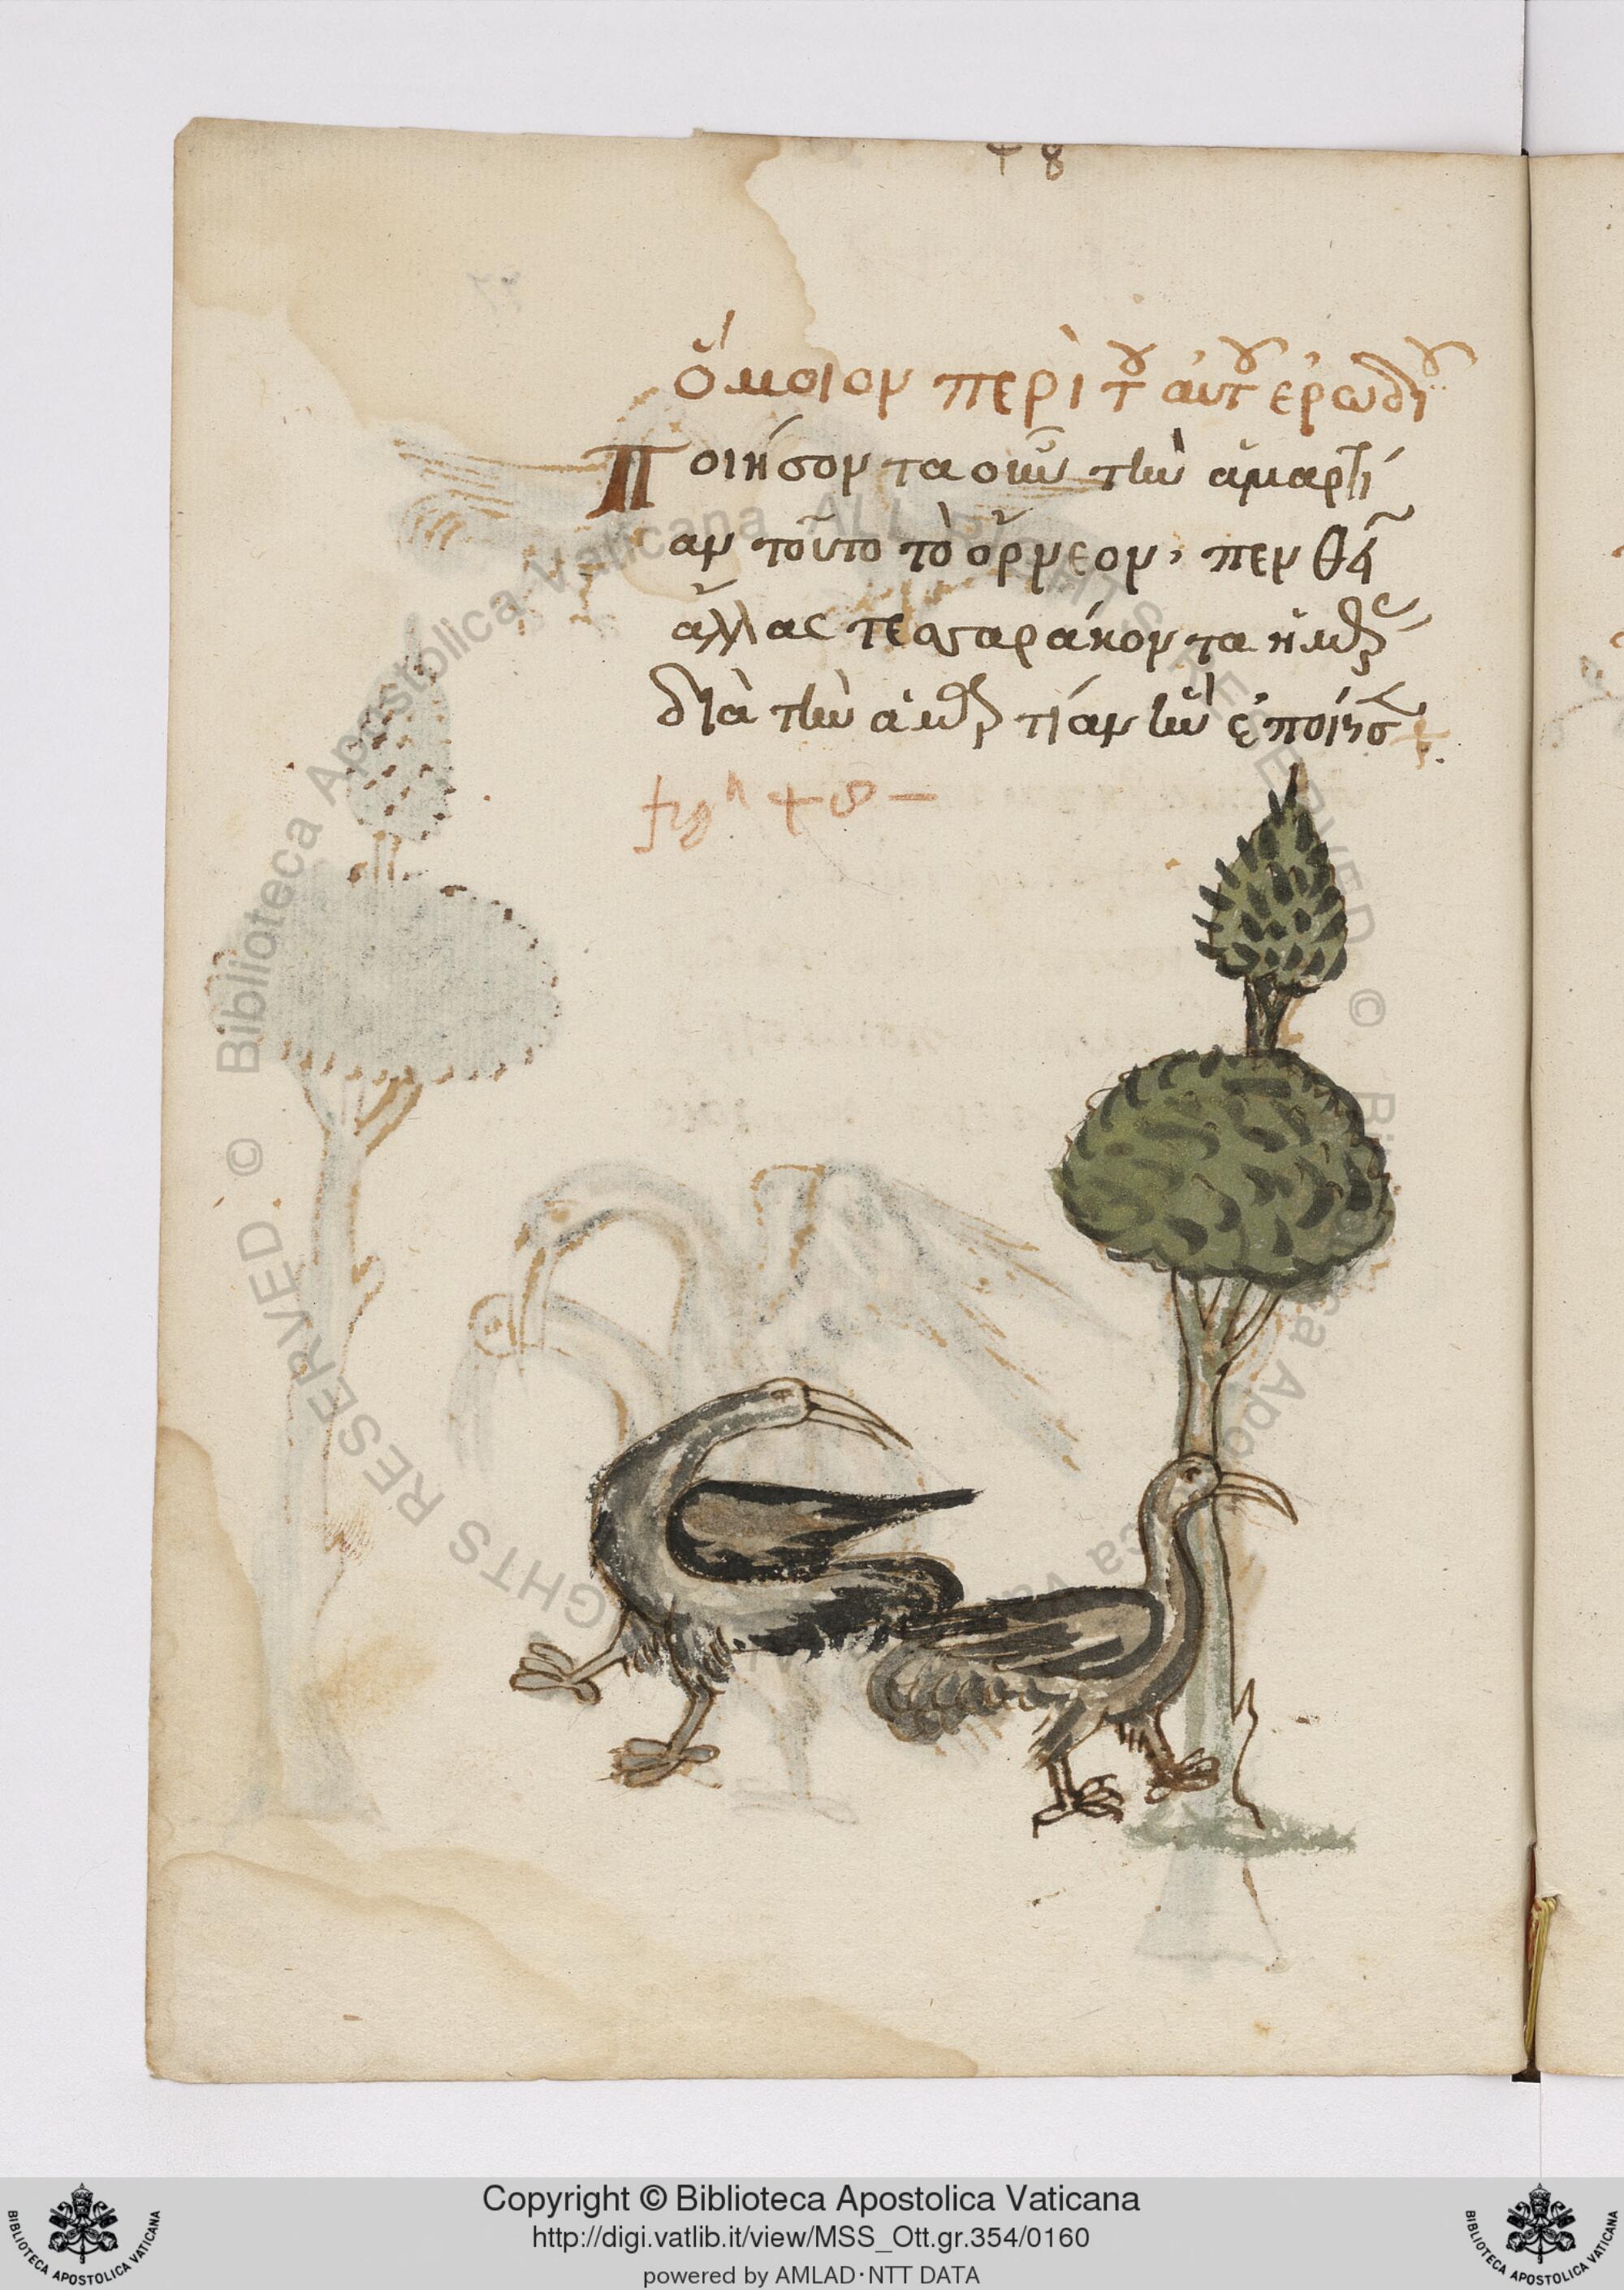 + 8
ὅμοιον περὶ τοῦ αὐτοῦ ἐρωδιοῦ
Ποιήσον τα οιῦν τὴν ἁμαρτί
αν τοῦτο τὸ ὄρνεον, πενθεῖ
ἄλλας τεσσαράκοντα ἡμέρας
διὰ τὴν ἁμαρτίαν ἣν ἐποίησε +
© Biblioteca Apostolica Vaticana ALL RIGHTS RESERVED
Copyright © Biblioteca Apostolica Vaticana
http://digi.vatlib.it/view/MSS_Ott.gr.354/0160
powered by AMLAD·NTT DATA
BIBLIOTECA APOSTOLICA VATICANA
BIBLIOTECA APOSTOLICA VATICANA